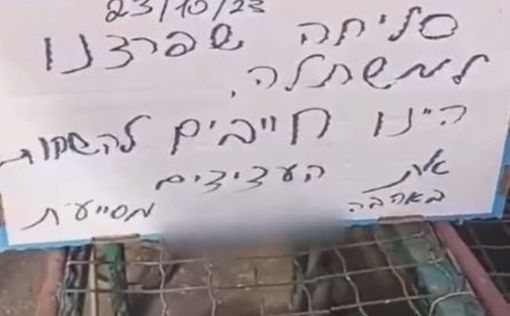 23/10/23
סליחה שפרצנו
למשתלה,
היינו חייבים להשקות
את העציצים
באהבה מסייעת